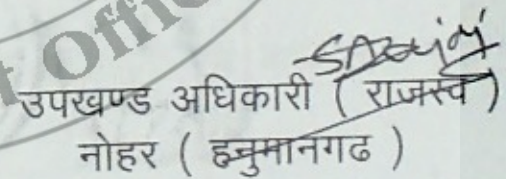 t Offi
उपखण्ड अधिकारी ( राजस्व )
नोहर ( हनुमानगढ )